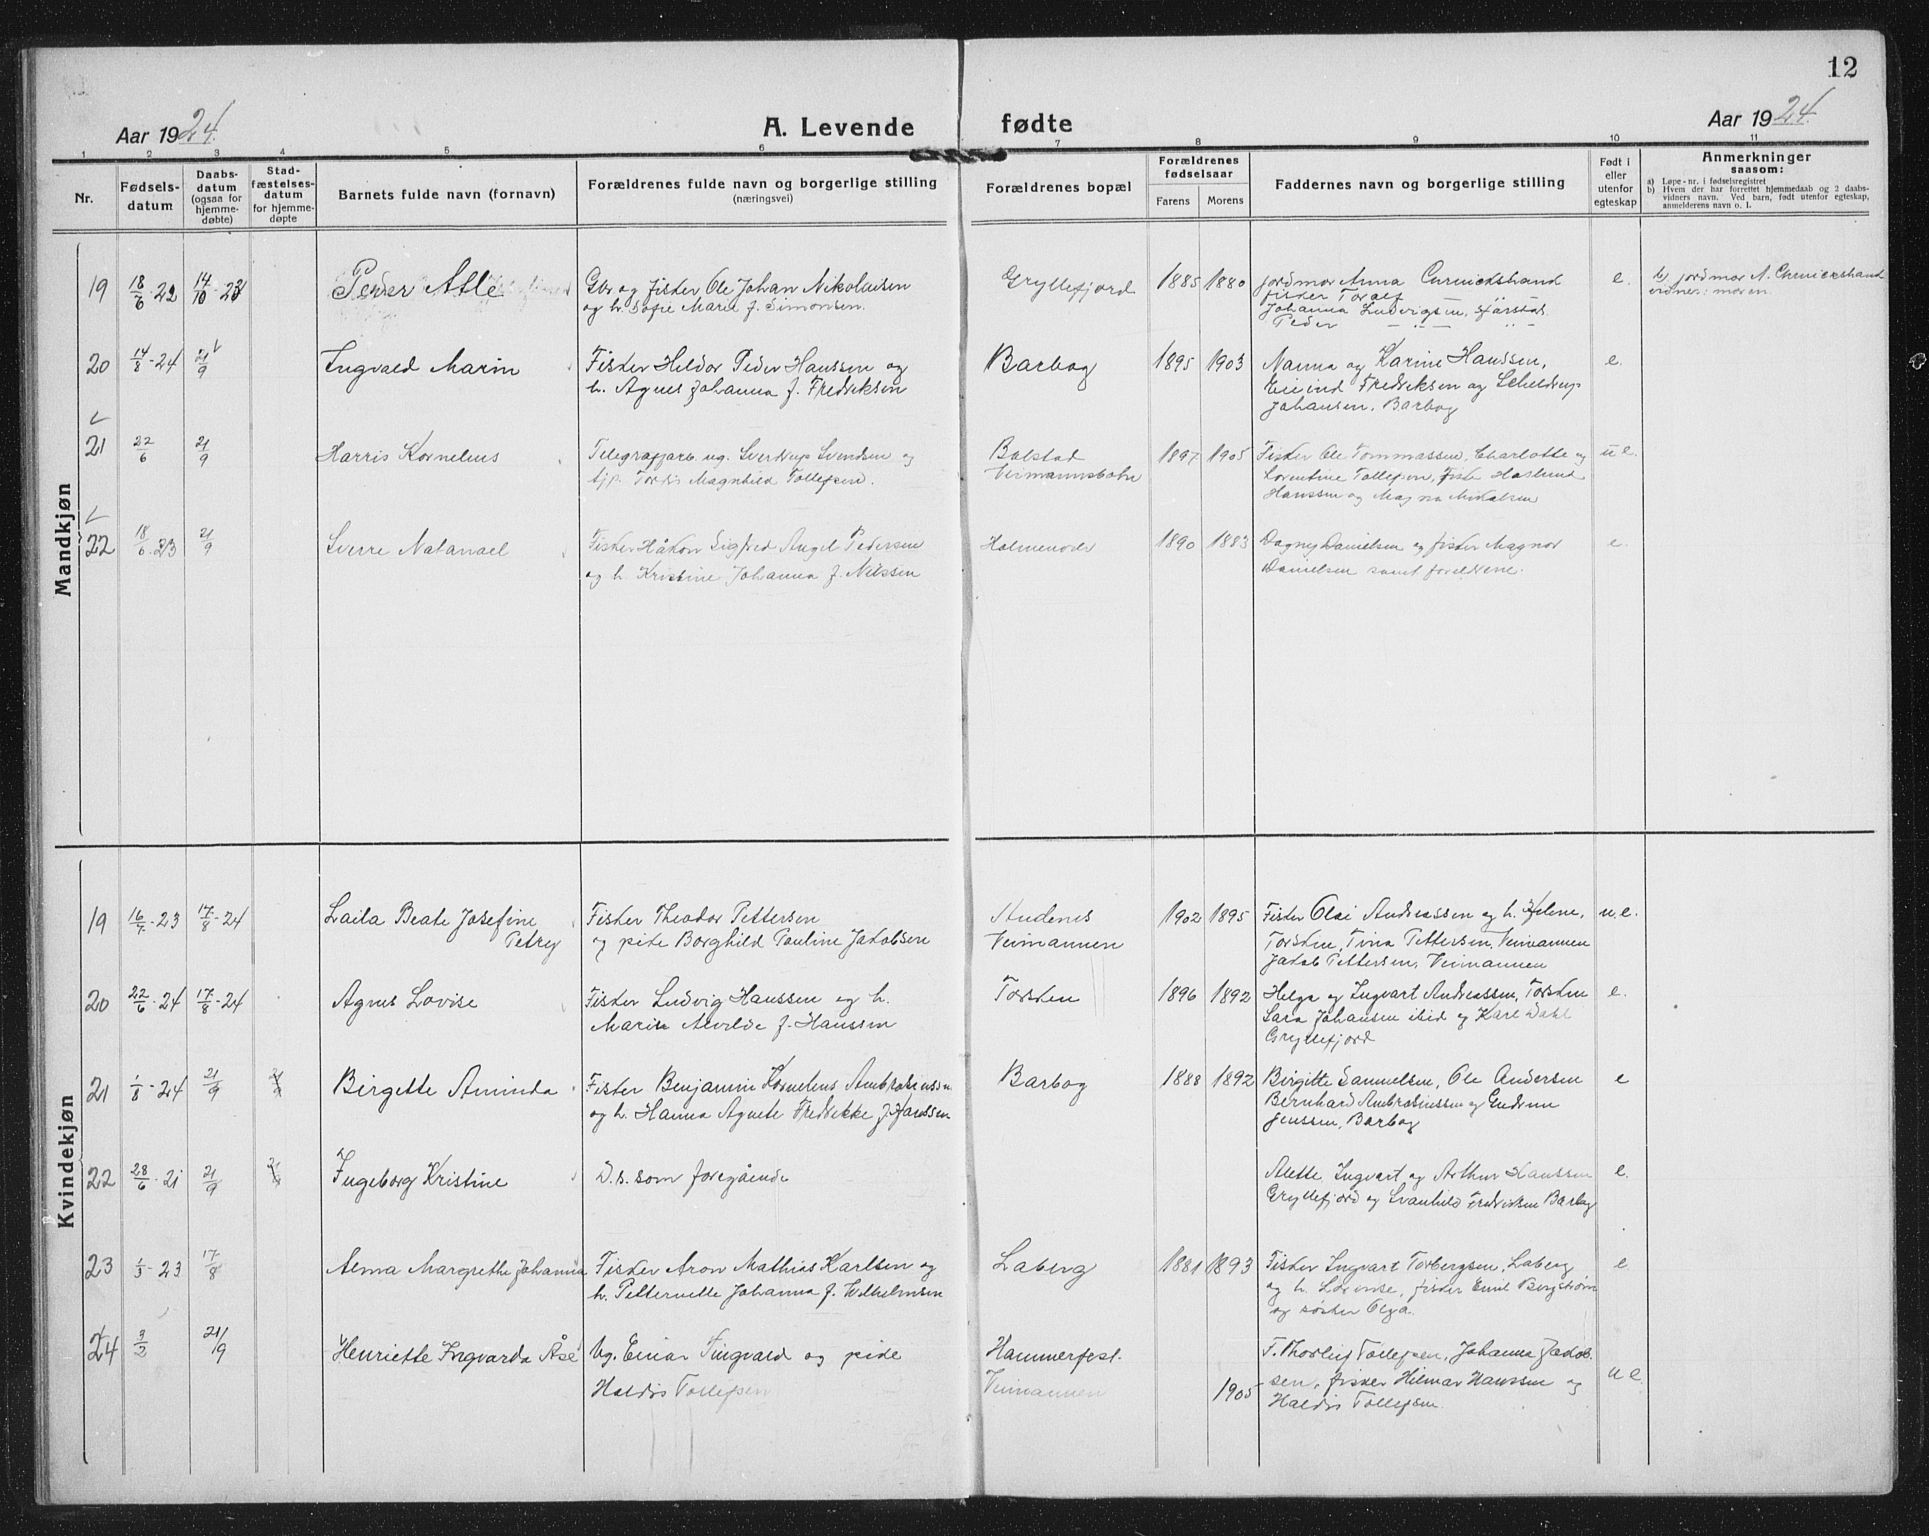 12
Aar 1924. A. Levende fødte Aar 1924.
1 2 3 4 5 6 7 8 9 10 11
Nr.
Fødsels-
datum
Daabs-
datum
(ogsaa for
hjemme-
døbte)
Stad-
fæstelses-
datum
for hjemme-
døpte
Barnets fulde navn (fornavn)
Forældrenes fulde navn og borgerlige stilling
(næringsvei)
Forældrenes bopæl
Forældrenes
fødselsaar
Farens Morens
Faddernes navn og borgerlige stilling
Født i
eller
utenfor
egteskap
Anmerkninger
saasom:
a) Løpe-nr. i fødselsregistret
b) Hvem der har forrettet hjemmedaab og 2 daabs-
vidners navn. Ved barn, født utenfor egteskap,
anmelderens navn o. l.
Mandkjøn
19 18/6-22 14/10-23 Peder Atle
Gbr og fisker Ole Johan Nikolaisen
og h. Sofie Marie f. Simonsen.
Gryllefjord 1885 1880
jordmor Anna
fisker Toralf
Johanna Ludvigsen,
Peder
e.
b) jordmor A.
moren.
20 14/8-24 21/9 Ingvald Marin
Fisker Heldor Peder Hanssen og
h. Agnes Johanna f. Fredriksen
Barbog 1895 1903
Nanna og Karine Hanssen,
Eivind Fredriksen og Scheldrup
Johansen, Barbog
e.
21 22/6 21/9 Harris Kornelius
Telegrafarb. ug. Sverdrup Svendsen og
tjp. Tordis Magnhild Tollefsen.
Balstad
Veimannsbotn
1897 1905
Fisker Ole Tommassen, Charlotte og
Lorentine Tollefsen, Fisker Haslund
Hanssen og Magna Mikalsen
u e.
22 18/6-23 21/9 Sverre Natanael
Fisker Håkon Sigfred Angel Pedersen
og h. Kristine Johanna f. Nilssen
Holmenoder 1890 1883
Dagny Danielsen og fisker Magnor
Danielsen samt foreldrene.
e.
Kvindekjøn
19 16/7-23 17/8-24 Laila Beate Josefine
Petry
Fisker Theodor Pettersen
og pike Borghild Pauline Jakobsen
Studenes
Veimannen
1902 1895
Fisker Olai Andreassen og h. Helene,
Torsken, Tina Pettersen, Veimannen
Jakob Pettersen, Veimannen
u.e.
20 22/6-24 17/8-24 Agnes Lovise
Fisker Ludvig Hanssen og h.
Marie Alvilde f. Hanssen
Torsken 1896 1892
Helga og Ingvart Andreassen, Torsken
Sara Johansen ibid og Karl Dahl
Gryllefjord
e.
21 1/8-24 21/9 Birgitte Aminda
Fisker Benjamin Kornelius Ambrosiussen
og h. Hanna Agnete Fredrikke f. Hanssen
Barbog 1888 1892
Birgitte Samuelsen, Ole Andersen
Bernhard Ambrosiussen og Gudrun
Jenssen, Barbog
e
22 28/6-21 21/9 Ingeborg Kristine
D.s. som foregående
Alette Ingvart og Arthur Hanssen
Gryllefjord og Svanhild Fredriksen Barbog
e.
23 1/3-23 17/8 Alma Margrethe Johanna
Fisker Aron Mathias Karlsen og
h. Petternelle Johanna f. Wilhelmsen
Laberg 1881 1893
Fisker Ingvart Torbergsen, Laberg
og h. Lorense, fisker Emil Bergstrøm
og søster Olga.
e
24 3/2 21/9 Henriette Ingvarda Åse
Ug. Einar Tingvald og pike
Haldis Tollefsen
Hammerfest.
Veimannen
1905
F. Thorleif Tollefsen, Johanna Jakob-
sen, fisker Hilmar Hanssen og
Haldis Tollefsen.
u e.